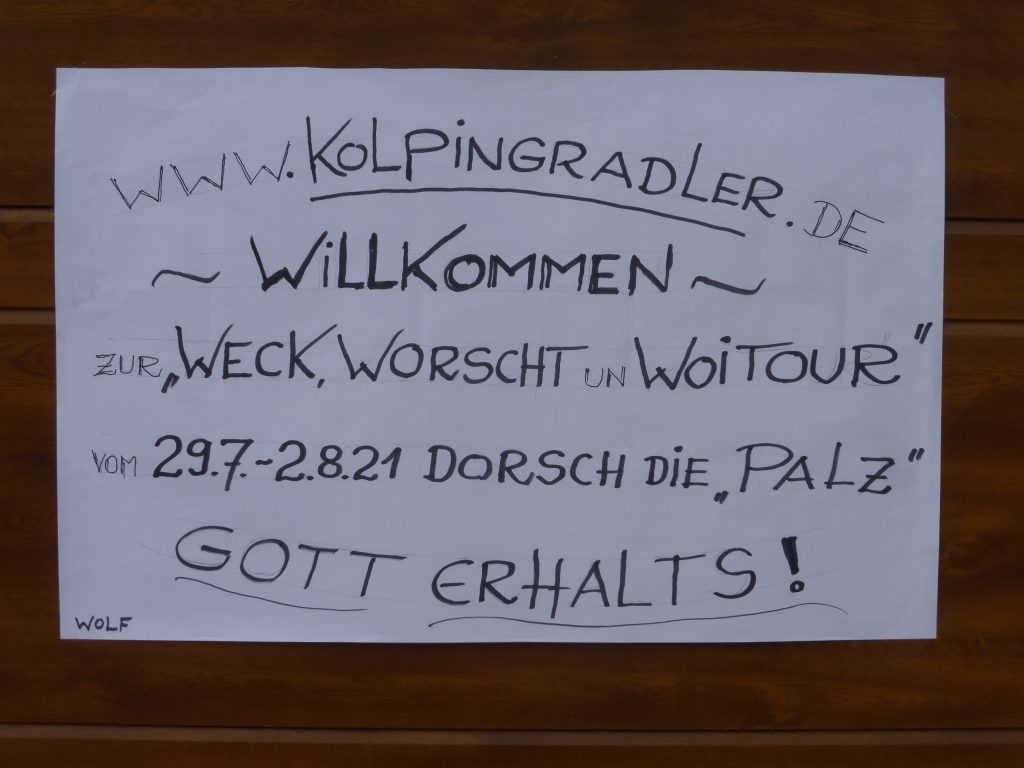 WWW.KOLPINGRADLER.DE
~ WILLKOMMEN ~
ZUR „WECK, WORSCHT UN WOITOUR"
VOM 29.7.-2.8.21 DORSCH DIE „PALZ"
GOTT ERHALTS!
WOLF